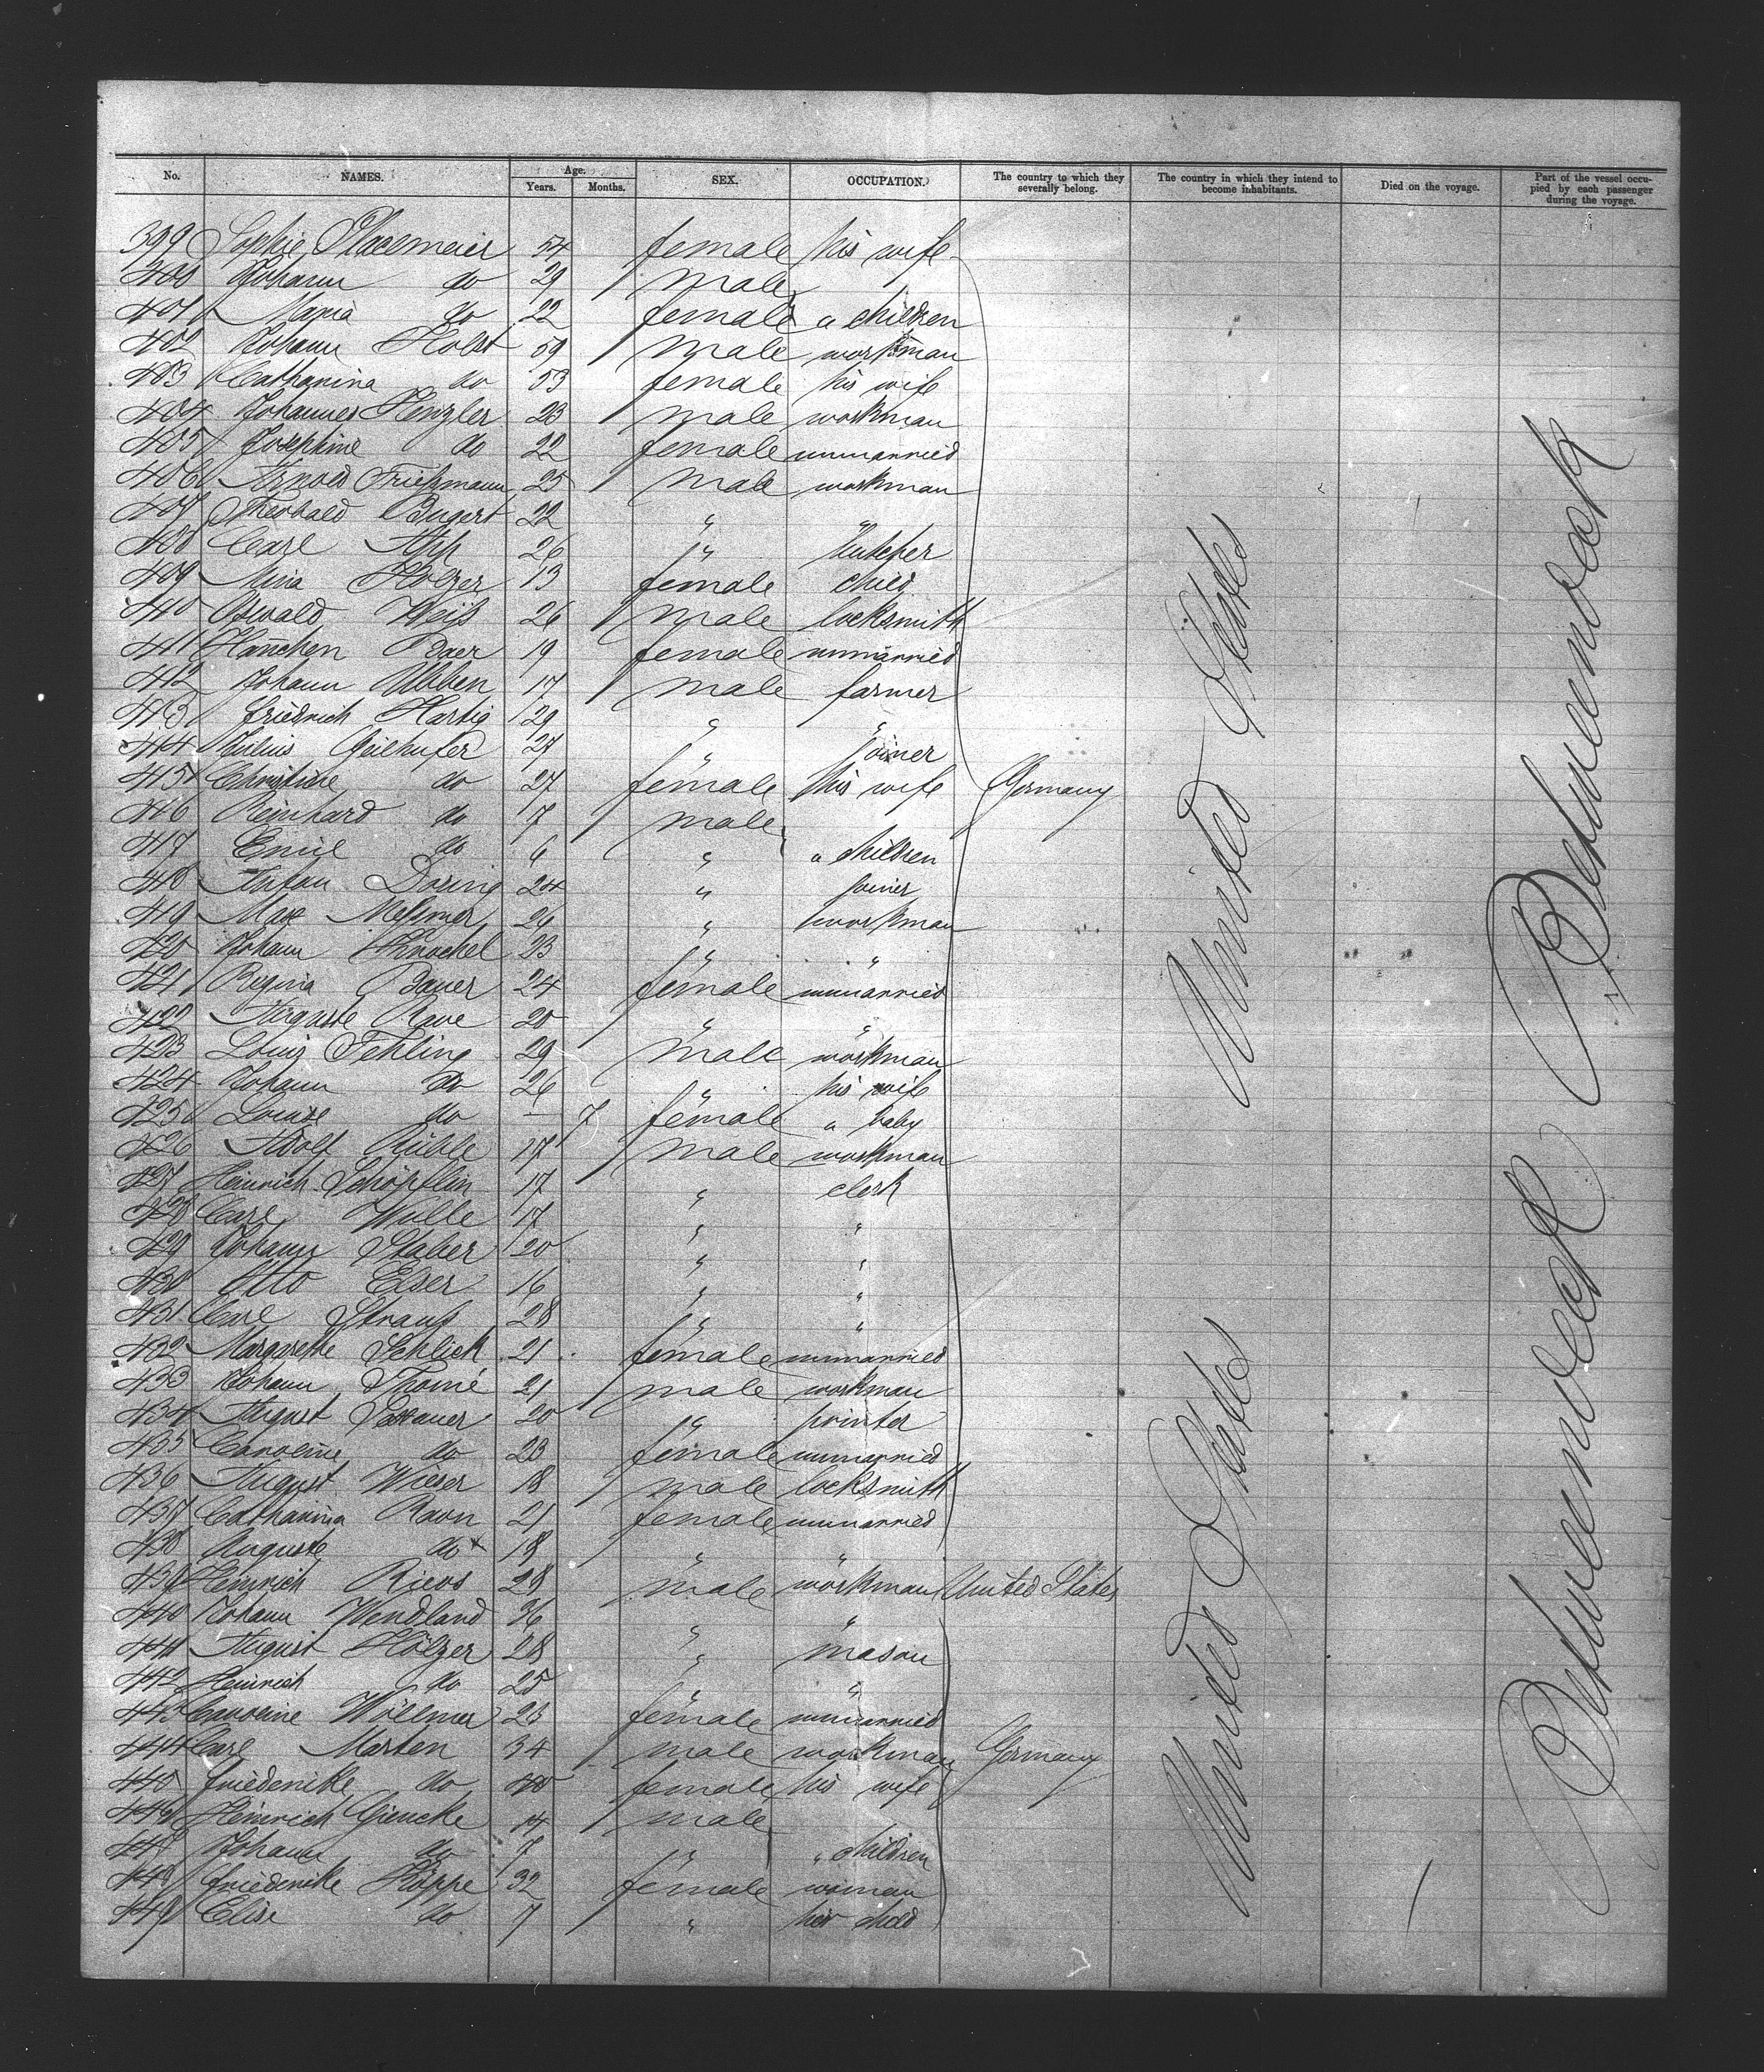 No. NAMES. Age. Years. Months. SEX. OCCUPATION. The country to which they severally belong. The country in which they intend to become inhabitants. Died on the voyage. Part of the vessel occupied by each passenger during the voyage.
399 Sophie 54 female his wife
400 Johann do 29 male
401 Maria do 22 female " children
402 Johann Holst 59 male workman
403 Catharina do 53 female his wife
404 Johannes Henzler 23 male workman
405 Josephine do 22 female unmarried
406 Arnold Frießmann 25 male workman
407 Theobald Bugert 22 " "
408 Carl App 26 " butcher
409 Mina Holzer 13 female child
410 Oswald Weiß 26 male locksmith
411 Hanchen Baer 19 female unmarried
412 Johann Ubben 17 male farmer
413 Friedrich Hartig 29 " "
414 Julius Geilhufer 27 " joiner
415 Christine do 27 female his wife Germany
416 Reinhard do 7 male
417 Emil do 6 " " children
418 Anton Döring 24 " joiner
419 Max Meßmer 26 " workman
420 Johann Knochel 23 " "
421 Regina Bauer 24 female unmarried
422 Auguste Rave 20 " "
423 Louis Fehling 29 male workman
424 Johann do 26 " his wife
425 Louise do — 7 female " baby
426 Adolf Rühle 17 male workman
427 Heinrich Schöpflin 17 " clerk
428 Carl Wulle 17 " "
429 Johann Staber 20 " "
430 Otto Elser 16 " "
431 Carl Strauß 28 " "
432 Margarethe Schlick 21 female unmarried
433 Johann Thomé 21 male workman
434 August 20 " printer
435 Caroline do 23 female unmarried
436 August Wieser 18 male locksmith
437 Catharina Raon 21 female unmarried
438 Auguste do 18 " "
439 Heinrich Rieos 28 male workman United States
440 Johann Wendland 36 " "
441 August Hölzer 28 " mason
442 Heinrich do 25 " "
443 Caroline Wöllmer 23 female unmarried
444 Carl Marten 34 male workman Germany
445 Friederike do 40 female his wife
446 Heinrich Giencke 14 male
447 Johann do 7 " " children
448 Friederike Köppe 32 female woman
449 Elise do 7 " her child
United States
United States
Betweendeck
Betweendeck